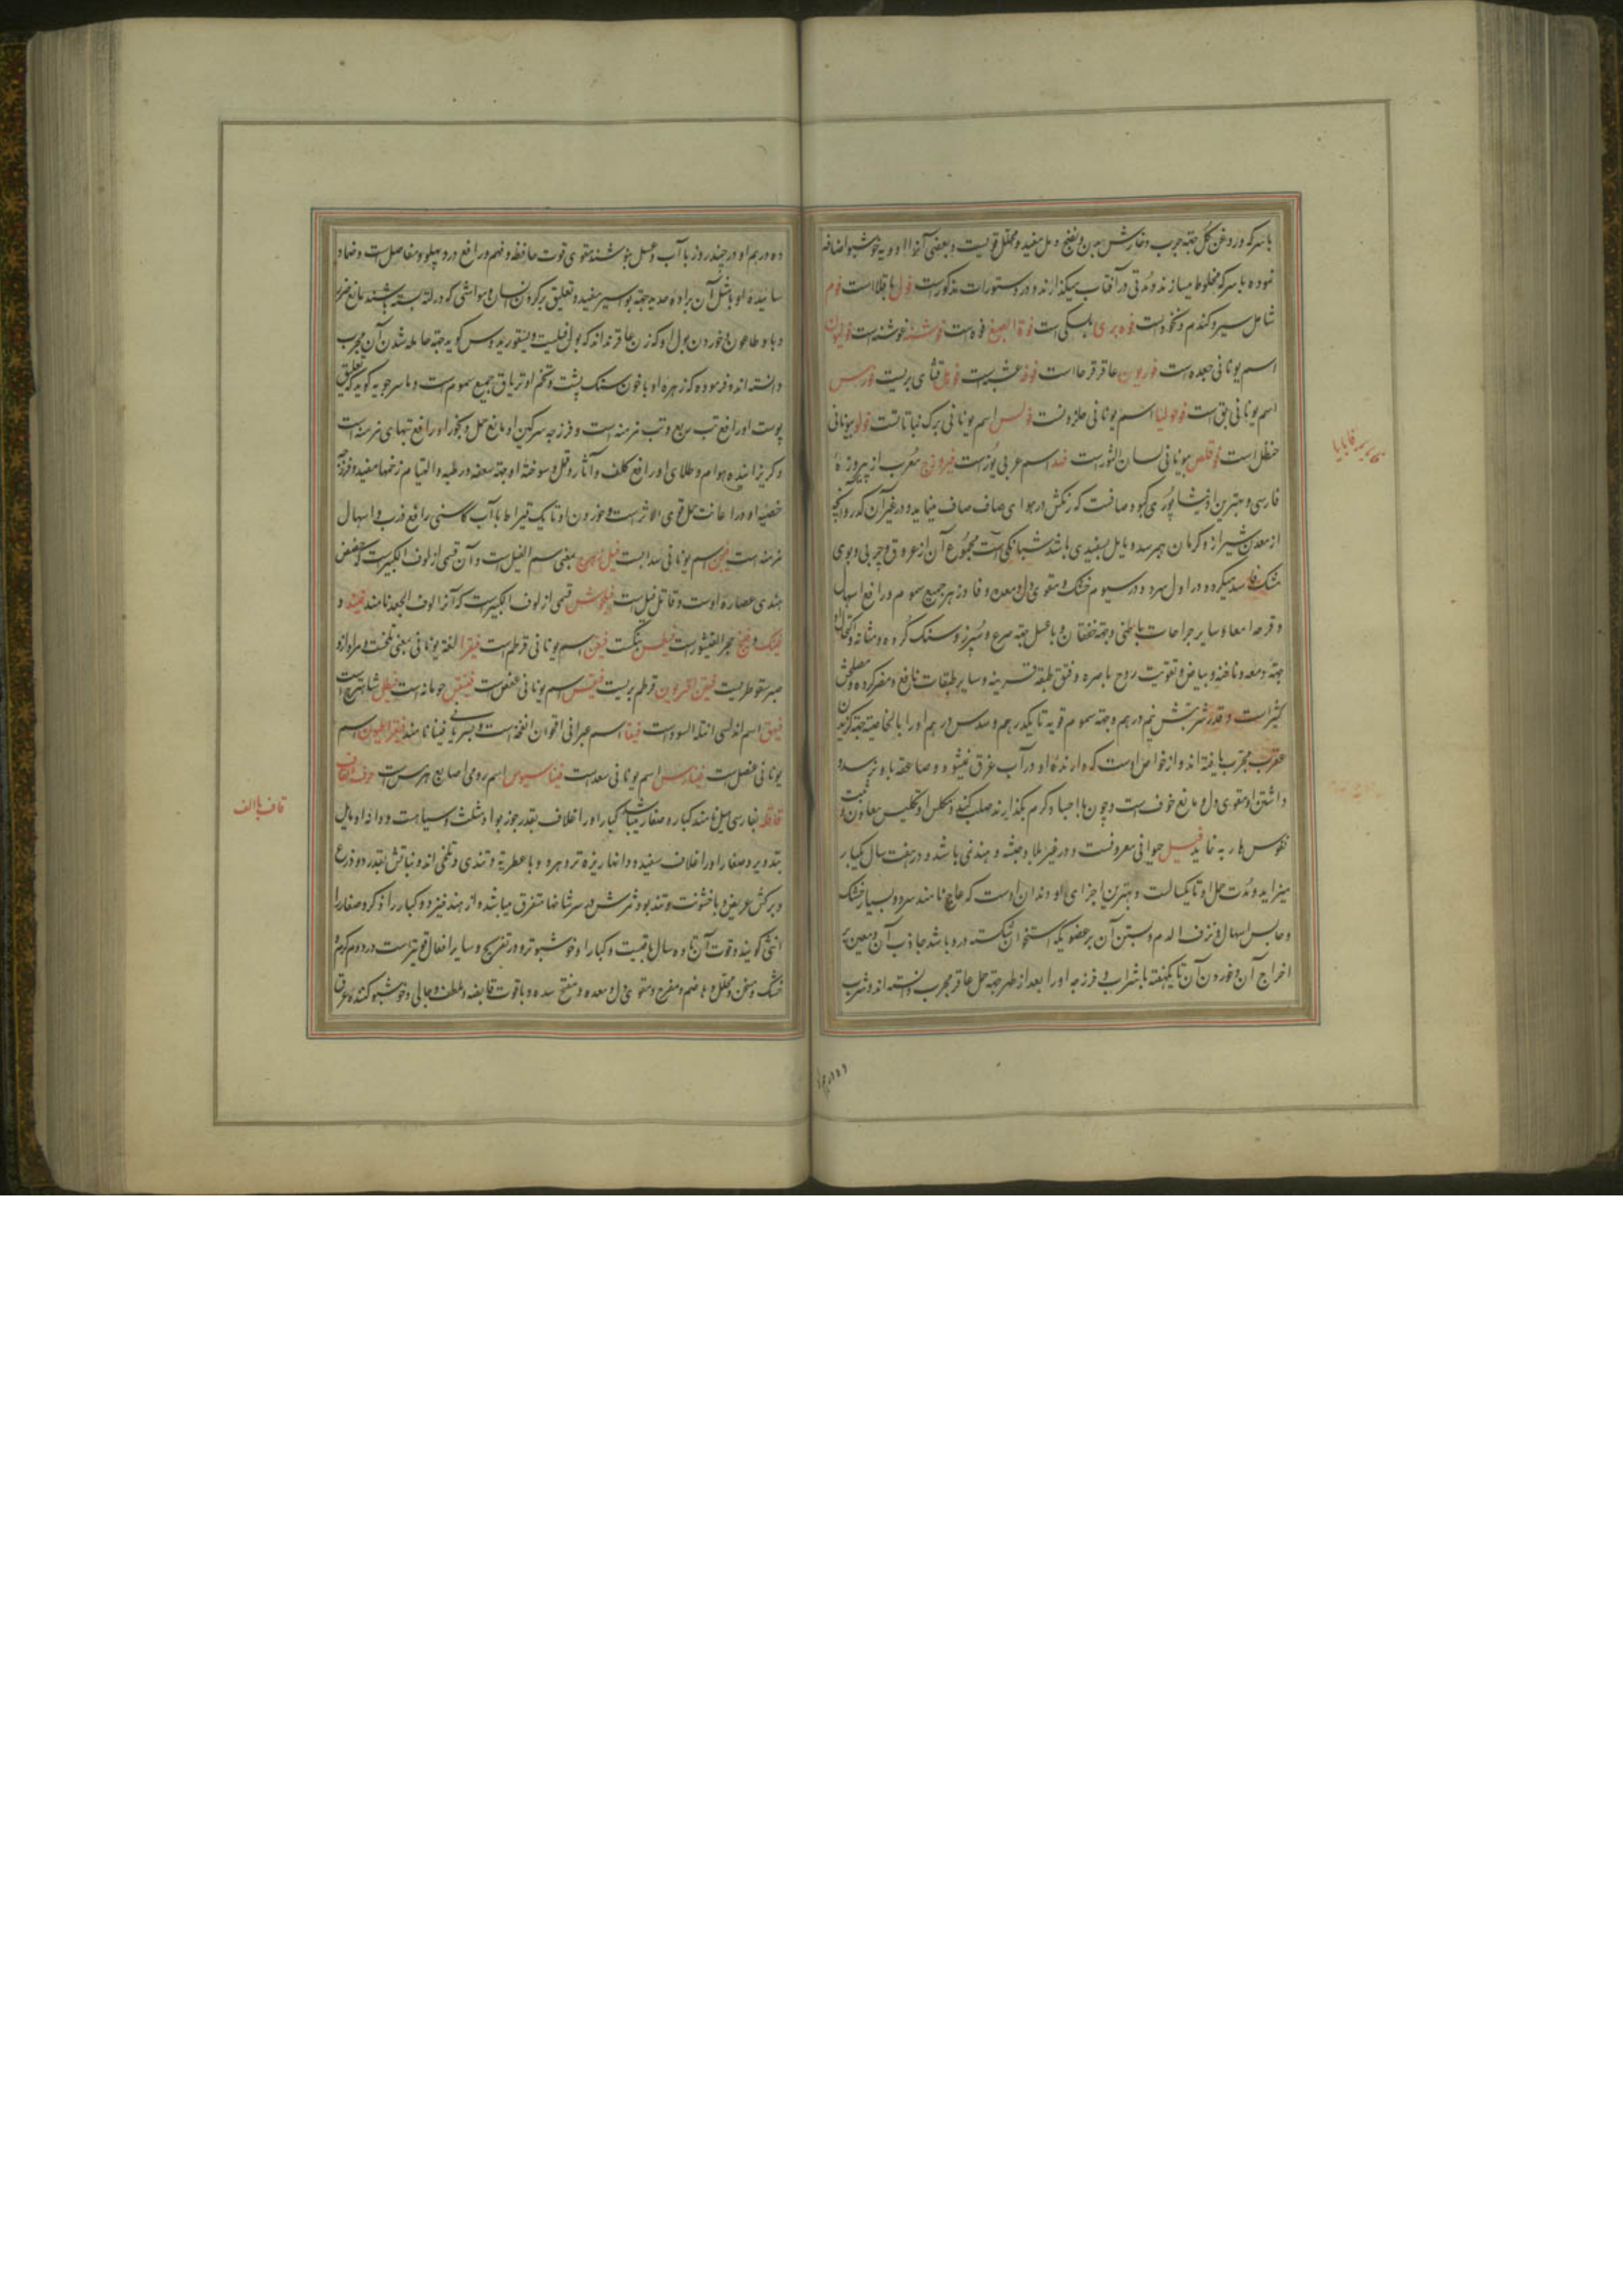 باسرکه و روغن گل جهة جرب و خارش بدن و نفخ و مل مفید و محلل قویست و بعضی آنرا ادویه خوشبو اضافه
نموده باسرکه مخلوط میسازند و مدتی در آفتاب میگذارند و در دستورات مذکور است فول باقلا است فوم
شامل سیر و گندم و نخود است فوه بری بلسکی است فوة الصبغ فوه است فوشنه غوشنه است فولیون
اسم یونانی جعده است فوریون عاقرقرحا است عشبیست قثای بریست
اسم یونانی بق است اسم یونانی حلزونست اسم یونانی برک نباتاتست فولو بیونانی
حنظل است فوقلص بیونانی لسان الثور است فهد اسم عربی یوزست فیروزج معرب از پیروزهٔ
فارسی و بهترین او نیشاپوری کبود صافست که رنگش در هوای صاف صاف مینماید و در غیر آن کدر و آنچه
از معدن شیراز و کرمان بهم رسد و مایل بسفیدی باشد شبانکی است و مجموع آن از عروق و چربی و بوی
مشک فاسد میگردد در اول سرد و در سیوم خشک و مقوی دل و معده و فادزهر جمیع سموم و رافع اسهال
و قرحه امعا و سایر جراحات باطنی و جهة خفقان و با عسل جهة صرع و سپرز و سنگ گرده و مثانه و اکتحال او
جهة دمعه و ناخنه و بیاض و تقویت روح باصره و فتق طبقه قرنیه و سایر طبقات نافع و مضر گرده و مصلحش
کثیراست و قدر شربتش نیم درهم و جهة سموم قویه تا یکدرهم و سدس درهم او را بالخاصیه جهة گزیدن
عقرب مجرب یافته اند و از خواص اوست که دارندهٔ او در آب غرق نمیشود و صاعقه باو نرسد و
داشتن او مقوی دل و مانع خوف است و چون با احساد گرم بگذارند صلب کند و مکلس او تکلیس معاون و مثبت
نفوس هاربه نماید فیل حیوانی معروفست و در غیر بلاد حبشه و هندنمی باشد و در هفت سال یکبار
میزاید و مدت حمل او تا یکسالست و بهترین اجزای او دندان اوست که عاج نامند سرد و بسیار خشک
و حابس اسهال و نزف الدم و بستن آن بر عضویکه استخوان شکسته در و باشد جاذب آن و معین بر
اخراج آن و خوردن آن تا یکهفته با شراب و فرزجه او را بعد از طهر جهة حمل عاقر مجرب دانسته اند و شرب
ده درهم او در چند روز با آب و عسل بنوشند مقوی قوت حافظه و فهم و رافع درد پهلو و مفاصل است و ضماد
سائیدهٔ او با مثل آن برادهٔ حدید جهة بواسیر مفید و تعلیق بر گردن انسان و مواشی که در لته بسته باشند مانع ضرر
وبا و طاعون و خوردن بول او که زن عاقر نداند که بول فیلست و دیسقوریدوس گوید جهة حامله شدن آن مجرب
دانسته اند و فرموده که زهرهٔ او با خون سنگ پشت و تخم او تریاق جمیع سموم است و ماسرجویه گوید که تعلیق
پوست او رافع تب ربع و تب مزمنه است و فرزجه سرگین او مانع حمل و بخور او رافع تبهای مزمنه است
و گریزانندهٔ هوام و طلای او رافع کلف و آثار و قمل و سوختهٔ او جهة سعفه رطبه و التیام زخمها مفید و فرزجهٔ
خصیهٔ او در اعانت حمل قوی الاثر است و خوردن او تا یک قیراط با آب کاسنی رافع ذرب و اسهال
مزمنه است فیجن اسم یونانی سداب است فیل زهرج بمعنی سم الفیل است و آن قسمی از لوف الکبیر است و حضض
هندی عصارهٔ اوست و قاتل فیل است فیلجوش قسمی از لوف الکبیر است که آنرا لوف الجعد نامند فینند و
فینک و فینج حجر القیشور است فیطس بنگست فیقن اسم یونانی قرطم است فیقرا لغة یونانی بمعنی تلخست و مراد از او
صبر سقوطریست قرطم بریست اسم یونانی عفص است جومانه است فیطل شاهترج است
فیهق اسم اندلسی انثله السود است فیقا اسم عبرانی اقحوان است و بسریانی فینا نامند اسم
یونانی عنصل است فینارس اسم یونانی سعد است فیناسیوس اسم رومی اصابع هرمس است حرف القاف
قاقله بفارسی هیل نامند کبار و صغار میباشد کبار او را غلاف بقدر جوز بوا و مثلث و سیاهست و دانه او مایل
بتدویر و صغار او را غلاف سفید و دانها ریزه تر و هر دو با عطریة و تندی و تلخی اند و نباتش بقدر دو ذرع
و برگش عریض و با خشونت و تند بو و ثمرش در سر شاخها متفرق میباشد و از هند خیزد و کبار را ذکر و صغار را
انثی گویند و قوت آن تا ده سال باقیست و کبار او خوشبوتر و در تفریح و سایر افعال قویتر است در دوم گرم و
خشک و مسخن و محلل و هاضم و مفرح و مقوی دل و معده و مفتح سده و با قوت قابضه و ملطف و جالی و خوشبو کننده عرق
قاف با الف